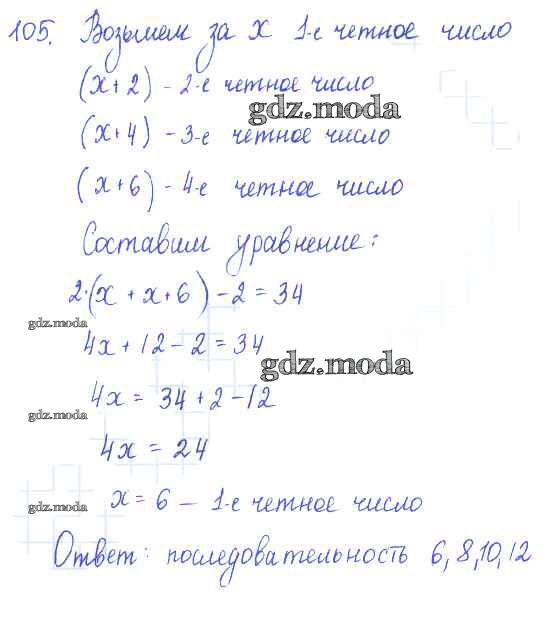 105. Возьмем за x 1-е четное число
(x+2) - 2-е четное число
gdz.moda
(x+4) - 3-е четное число
(x+6) - 4-е четное число
Составим уравнение:
2·(x + x+6) - 2 = 34
gdz.moda
4x + 12 - 2 = 34
gdz.moda
4x = 34 + 2 - 12
gdz.moda
4x = 24
x = 6 — 1-е четное число
gdz.moda
Ответ: последовательность 6, 8, 10, 12